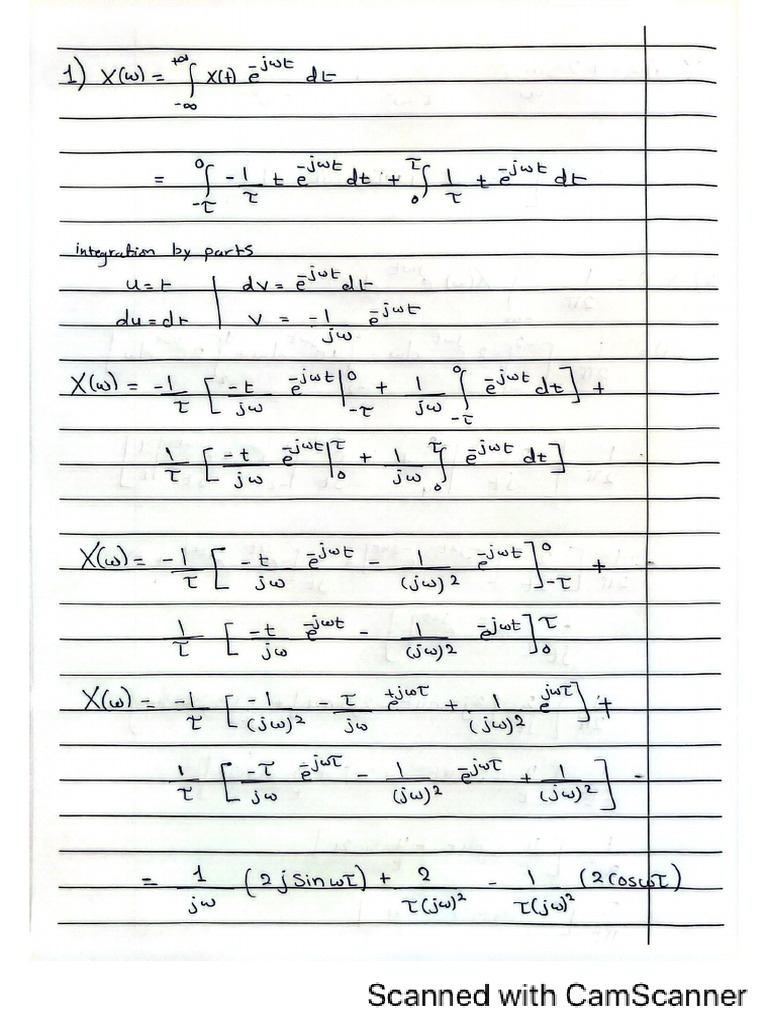 1) X(ω) = ∫_{-∞}^{+∞} x(t) e^{-jωt} dt
= ∫_{-τ}^{0} -1/τ t e^{-jωt} dt + ∫_{0}^{τ} 1/τ t e^{-jωt} dt
integration by parts
u = t | dv = e^{-jωt} dt
du = dt | v = -1/jω e^{-jωt}
X(ω) = -1/τ [ -t/jω e^{-jωt} |_{-τ}^{0} + 1/jω ∫_{-τ}^{0} e^{-jωt} dt ] +
1/τ [ -t/jω e^{-jωt} |_{0}^{τ} + 1/jω ∫_{0}^{τ} e^{-jωt} dt ]
X(ω) = -1/τ [ -t/jω e^{-jωt} - 1/(jω)² e^{-jωt} ]_{-τ}^{0} +
1/τ [ -t/jω e^{-jωt} - 1/(jω)² e^{-jωt} ]_{0}^{τ}
X(ω) = -1/τ [ -1/(jω)² - τ/jω e^{+jωτ} + 1/(jω)² e^{jωτ} ] +
1/τ [ -τ/jω e^{-jωτ} - 1/(jω)² e^{-jωτ} + 1/(jω)² ]
= 1/jω (2j sin ωτ) + 2/τ(jω)² - 1/τ(jω)² (2 cos ωτ)
Scanned with CamScanner